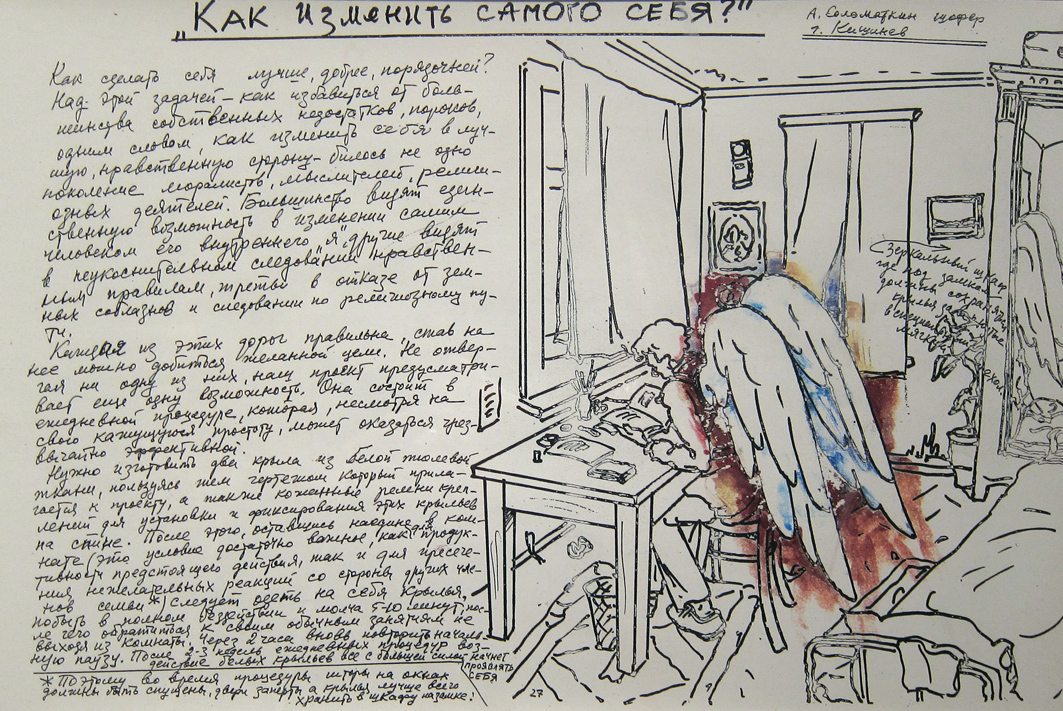 "Как изменить самого себя?"
А. Соломаткин шофер
г. Кишинев
Как сделать себя лучше, добрее, порядочней?
Над этой задачей – как избавиться от боль-
шинства собственных недостатков, пороков,
одним словом, как изменить себя в луч-
шую, нравственную сторону – билось не одно
поколение моралистов, мыслителей, религи-
озных деятелей. Большинство видят един-
ственную возможность в изменении самим
человеком его внутреннего „я", другие видят
в неукоснительном следовании нравствен-
ным правилам, третьи в отказе от зем-
ных соблазнов и следовании по религиозному пу-
ти.
Каждая из этих дорог правильна, став на
нее можно добиться желанной цели. Не отвер-
гая ни одну из них, наш проект предусматри-
вает еще одну возможность. Она состоит в
ежедневной процедуре, которая, несмотря на
свою кажущуюся простоту, может оказаться чрез-
вычайно эффективной.
Нужно изготовить два крыла из белой тюлевой
ткани, пользуясь тем чертежом который прила-
гается к проекту, а также кожанные ремни креп-
лений для установки и фиксирования этих крыльев
на спине. После этого, оставшись наедине в ком-
нате (это условие достаточно важное как для продук-
тивности предстоящего действия, так и для пресече-
ния нежелательных реакций со стороны других чле-
нов семьи *) следует одеть на себя крылья,
побыть в полном бездействии и молча 5-10 минут, пос-
ле чего обратиться к своим обычным занятиям не
выходя из комнаты. Через 2 часа вновь повторить началь-
ную паузу. После 2-3 недель ежедневных процедур воз-
действие белых крыльев все с большей силой начнет
проявлять
себя
* Поэтому во время процедуры шторы на окнах
должны быть спущены, двери заперты а крылья лучше всего
хранить в шкафу на замке!
Зеркальный шкаф
где под замком
должны сохран
крылья
в специальном
мягком
27